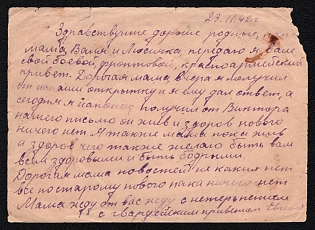 23.11.42г.
Здравствуйте дорогие родные,
мама, Валя и Люсичка, передаю я вам
свой боевой, фронтовой, красноармейский
привет. Дорогая мама, вчера я получил
от вас открытку и я ему дал ответ, а
сегодня я получил от Виктора
письмо он жив и здоров нового
ничего нет. Я также мама пока жив
и здоров чего также желаю быть вам
всем здоровыми и быть бодрыми.
Дорогая мама новостей не каких нет
все по старому нового пока ничего нет
Мама жду от вас жду с нетерпением
с гвардейским приветом